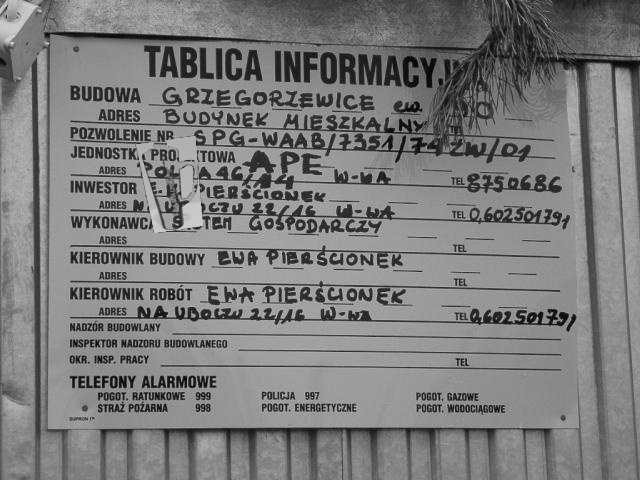 TABLICA INFORMACYJNA
BUDOWA GRZEGORZEWICE ew.
ADRES BUDYNEK MIESZKALNY
POZWOLENIE NR SPG-WAAB/7351/74 ZW/01
JEDNOSTKA PROJEKTOWA APE
ADRES 46/14 W-WA TEL 8750686
INWESTOR E. PIERŚCIONEK
ADRES NA UBOCZU 22/16 W-WA TEL 0,602501791
WYKONAWCA SYSTEM GOSPODARCZY
ADRES TEL
KIEROWNIK BUDOWY EWA PIERŚCIONEK
ADRES TEL
KIEROWNIK ROBÓT EWA PIERŚCIONEK
ADRES NA UBOCZU 22/16 W-WA TEL 0,602501791
NADZÓR BUDOWLANY
INSPEKTOR NADZORU BUDOWLANEGO
OKR. INSP. PRACY TEL
TELEFONY ALARMOWE
POGOT. RATUNKOWE 999 POLICJA 997 POGOT. GAZOWE
STRAŻ POŻARNA 998 POGOT. ENERGETYCZNE POGOT. WODOCIĄGOWE